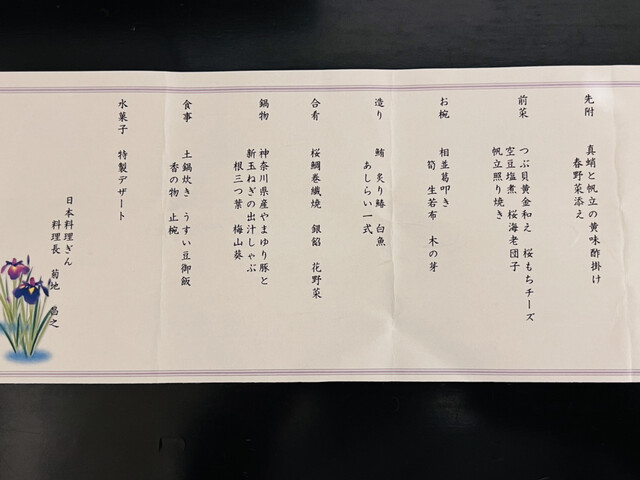 先附　真蛸と帆立の黄味酢掛け
春野菜添え
前菜　つぶ貝黄金和え　桜もちチーズ
空豆塩煮　桜海老団子
帆立照り焼き
お椀　相並葛叩き
筍　生若布　木の芽
造り　鮪　炙り鰆　白魚
あしらい一式
合肴　桜鯛巻繊焼　銀餡　花野菜
鍋物　神奈川県産やまゆり豚と
新玉ねぎの出汁しゃぶ
根三つ葉　梅山葵
食事　土鍋炊き　うすい豆御飯
香の物　止椀
水菓子　特製デザート
日本料理ぎん
料理長　菊地　昌之